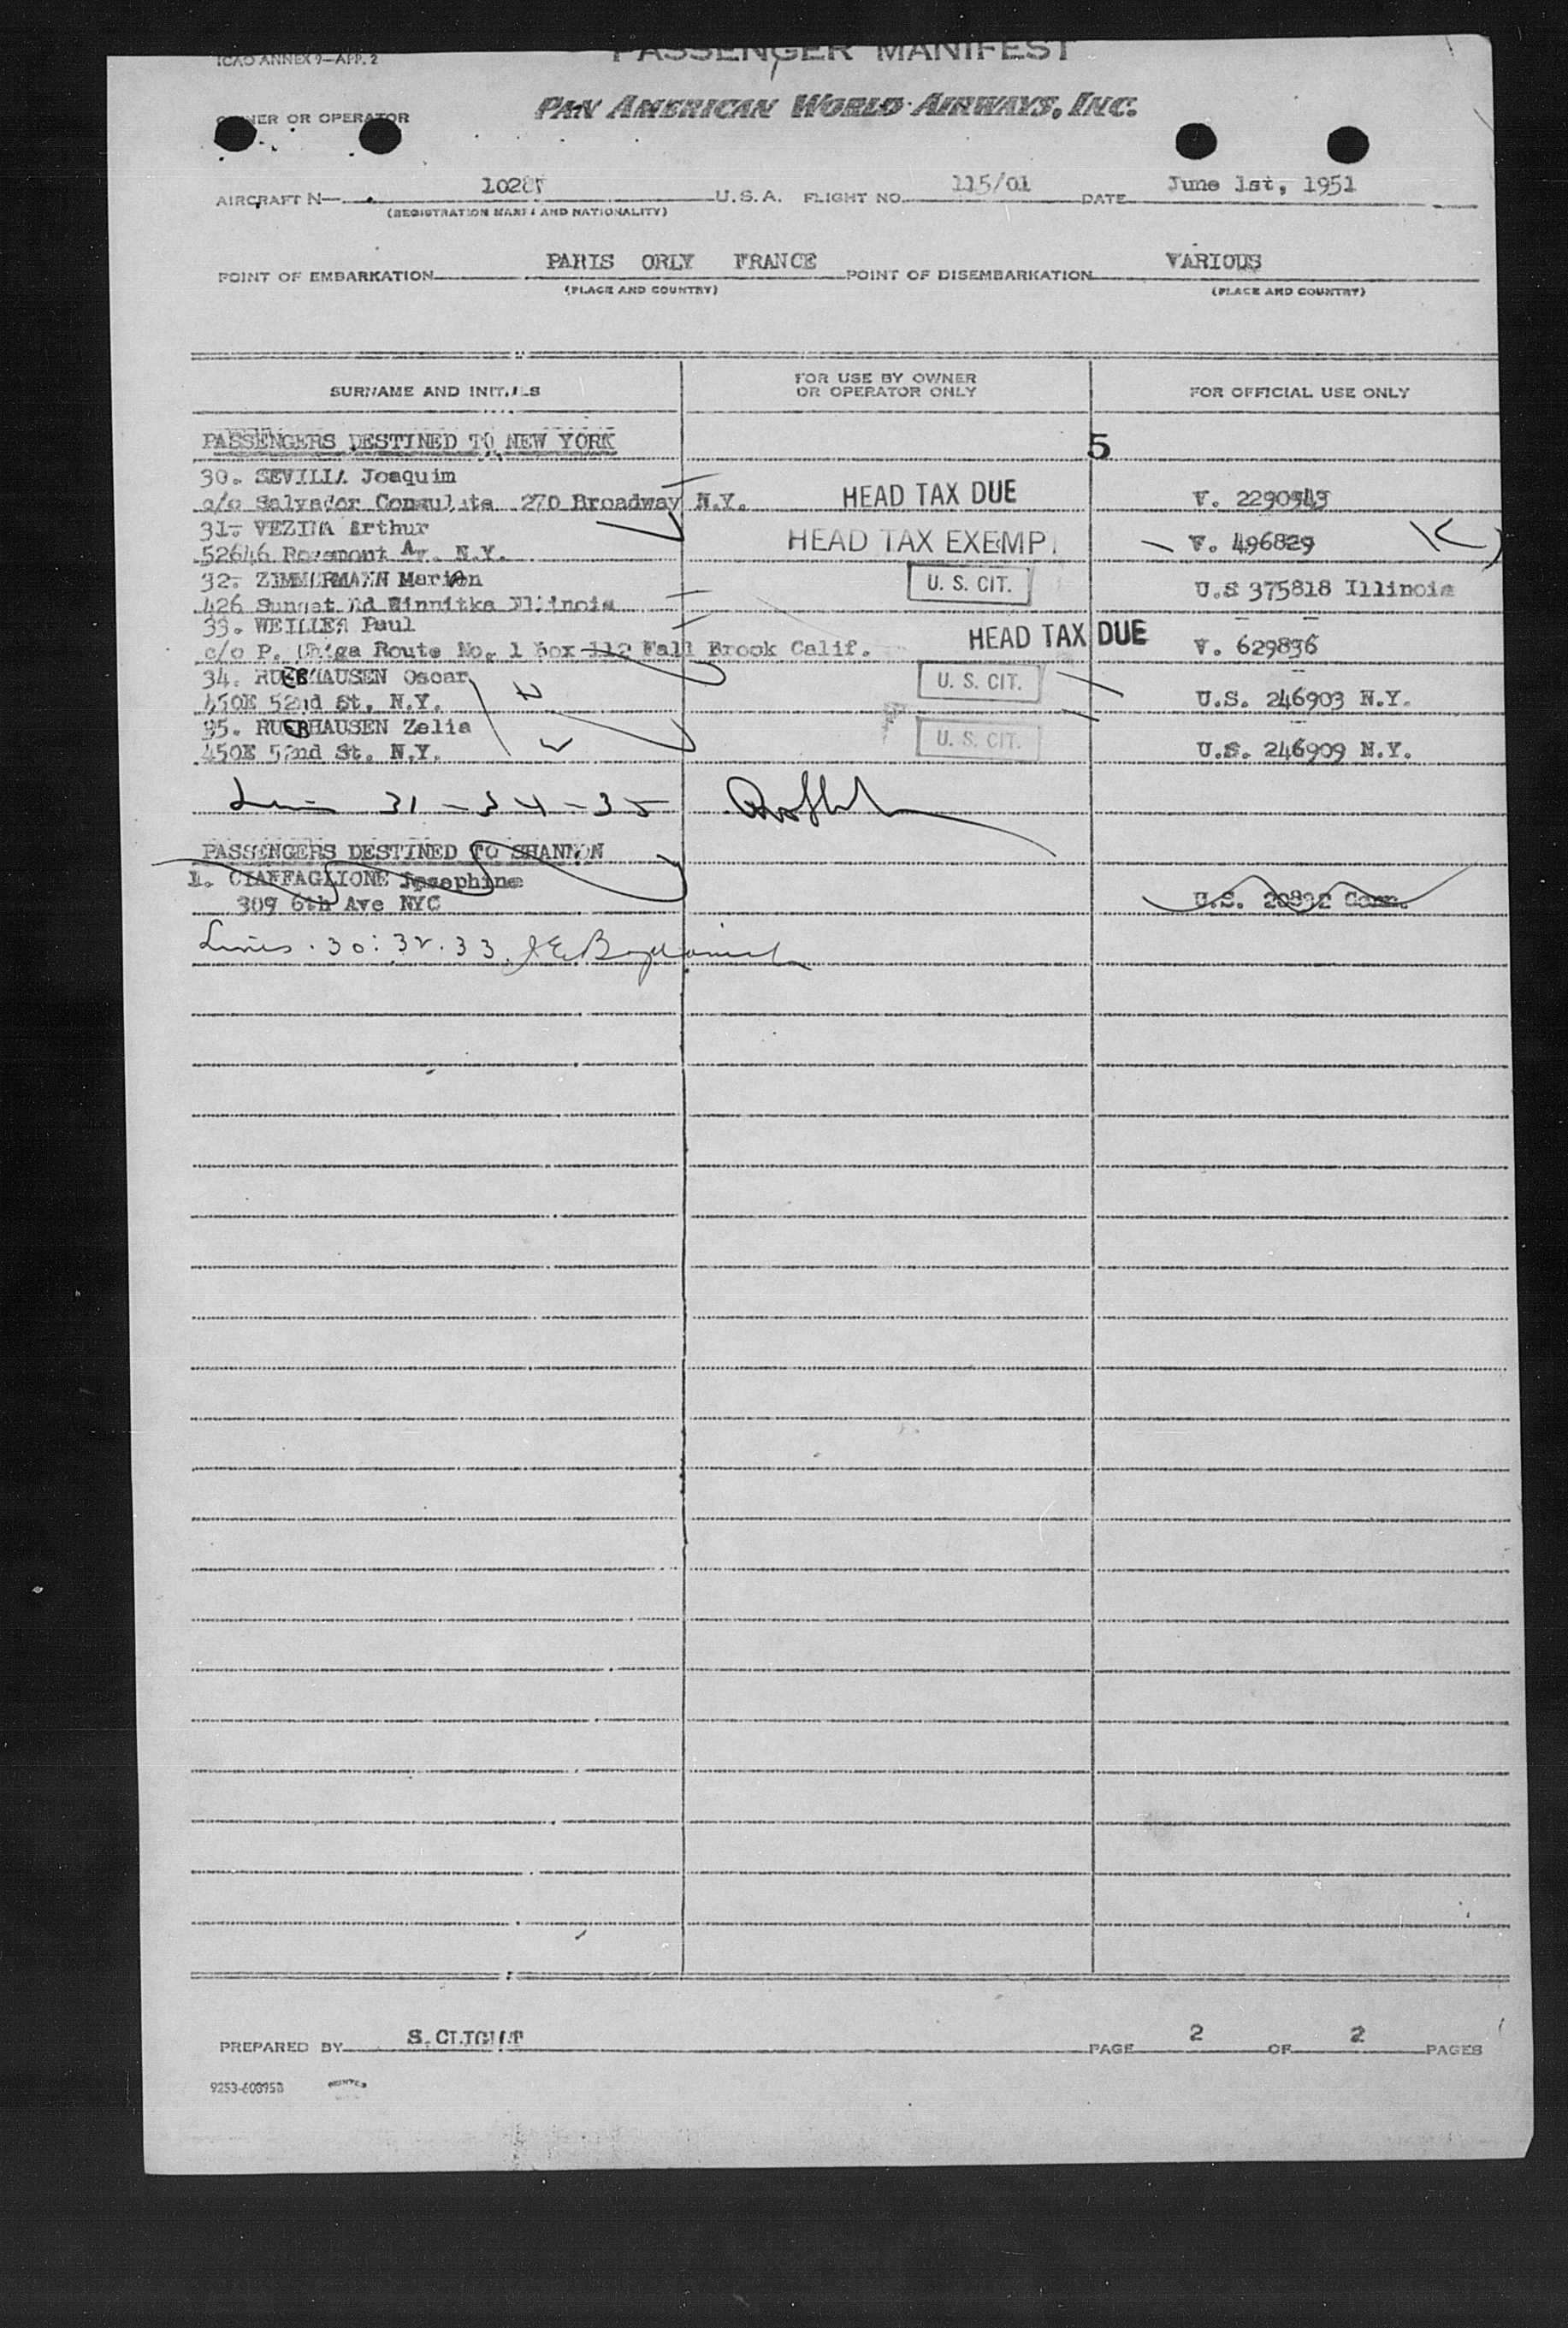 ICAO ANNEX 9—APP. 2
PASSENGER MANIFEST
OWNER OR OPERATOR
PAN AMERICAN WORLD AIRWAYS, INC.
AIRCRAFT N— 1028V U.S.A. FLIGHT NO. 115/01 DATE June 1st, 1951
(REGISTRATION MARKS AND NATIONALITY)
POINT OF EMBARKATION PARIS ORLY FRANCE POINT OF DISEMBARKATION VARIOUS
(PLACE AND COUNTRY) (PLACE AND COUNTRY)
SURNAME AND INITIALS FOR USE BY OWNER OR OPERATOR ONLY FOR OFFICIAL USE ONLY
PASSENGERS DESTINED TO NEW YORK 5
30. SEVILLA Joaquim
c/o Salvador Consulate 270 Broadway N.Y. HEAD TAX DUE V. 2290943
31. VEZINA Arthur
52646 Rosemont Av. N.Y. HEAD TAX EXEMP V. 496829
32. ZIMMERMANN Marion
426 Sunset Rd Winnitka Illinois U. S. CIT. U.S 375818 Illinois
33. WEILLER Paul
c/o P. Route No. 1 box 112 Fall Brook Calif. HEAD TAX DUE V. 629836
34. RUEBHAUSEN Oscar
450E 52nd St. N.Y. U. S. CIT. U.S. 246903 N.Y.
35. RUEBHAUSEN Zelia
450E 52nd St. N.Y. U. S. CIT. U.S. 246909 N.Y.
31 - 34 - 35
PASSENGERS DESTINED TO SHANNON
1. CIAFFAGLIONE Josephine
309 6th Ave NYC U.S. 20832 Conn.
Lines 30: 32. 33
PREPARED BY S. PAGE 2 OF 2 PAGES
9253-60395B PRINTED